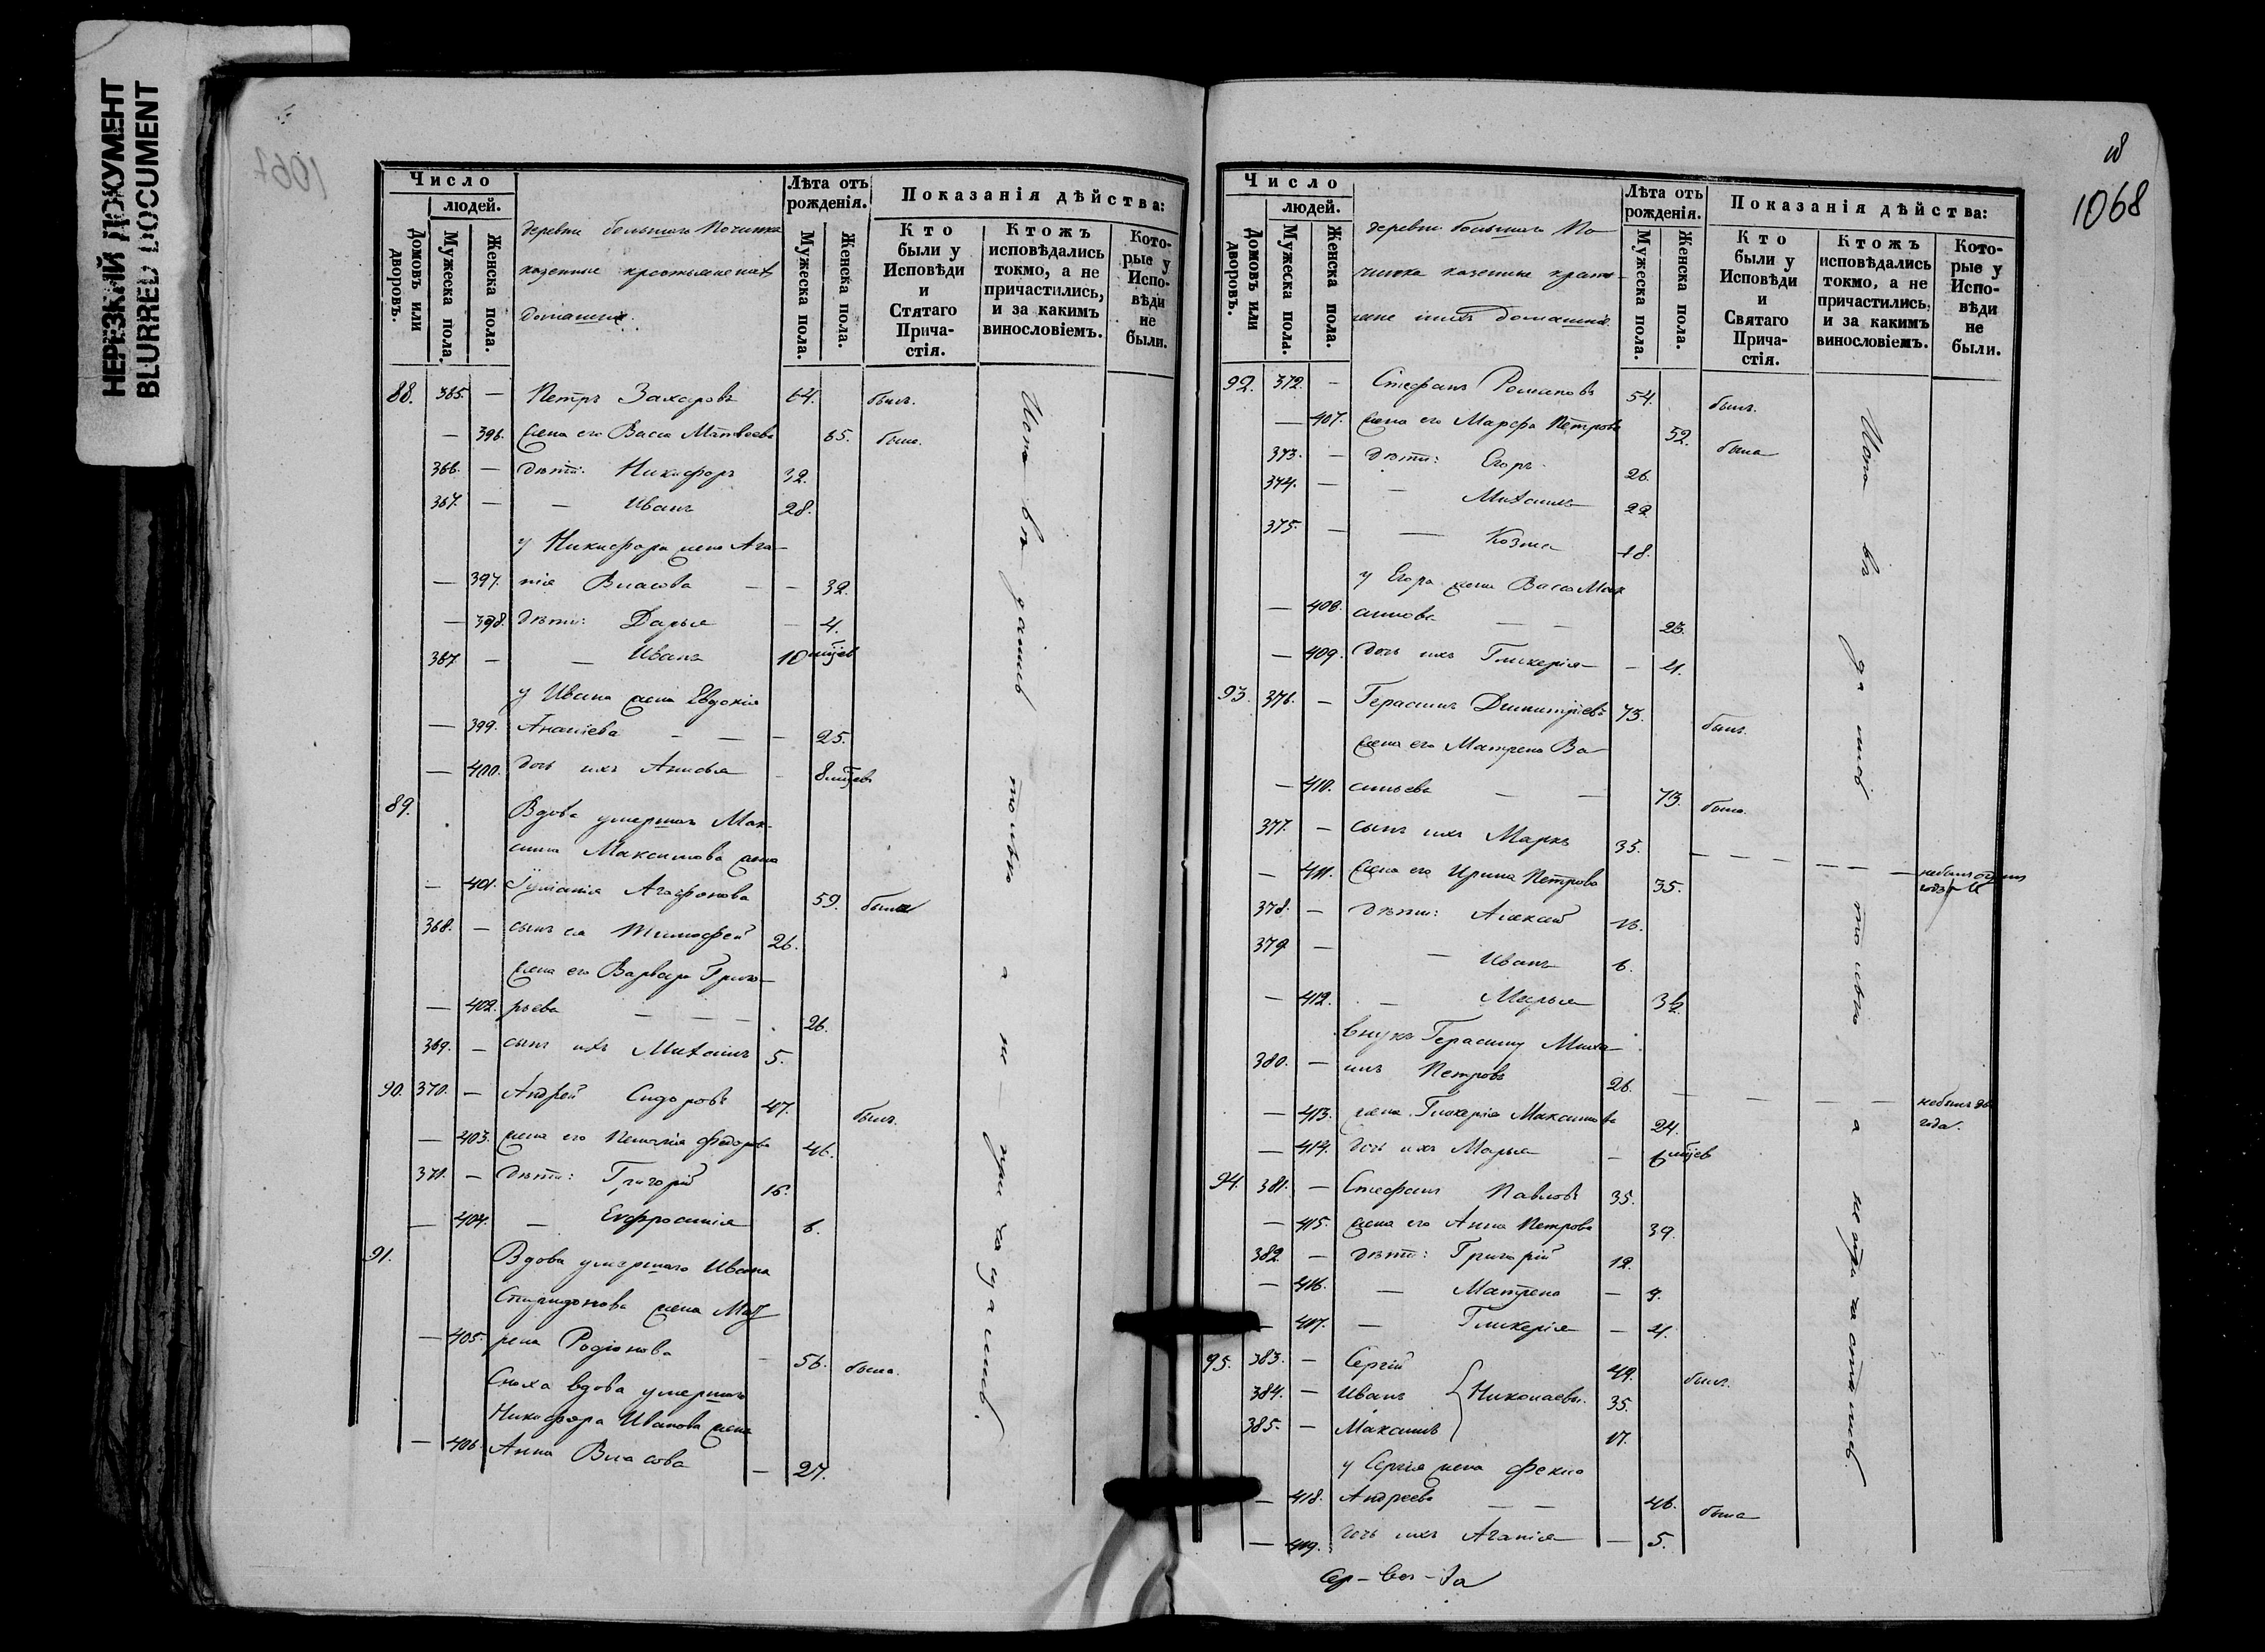 НЕРЕЗКИЙ ДОКУМЕНТ
BLURRED DOCUMENT
1067
Число
людей.
Домовъ или дворовъ.
Мужеска пола.
Женска пола.
деревни большаго Починка
казенные крестьяне ихъ
домашніе.
Лѣта отъ рожденія.
Мужеска пола.
Женска пола.
Показанія дѣйства:
Кто были у Исповѣди и Стятаго Причастія.
Ктожъ исповѣдались токмо, а не причастились, и за какимъ винословіемъ.
Которые у Исповѣди не были.
88. 365. — Петръ Захаровъ 64. былъ.
— 396. жена его Васса Матвеева 65. была.
366. — дѣти: Никифоръ 32.
367. — — Иванъ 28.
у Никифора жена Ага-
— 397. пія Власова — — 32.
— 398. дѣти: Дарья — 4.
367. — — Иванъ 10 мцев
у Ивана жена Евдокія
— 399. Ананіева — — — 25.
— 400. дочь ихъ Анисья — 8 мцевъ
89. Вдова умершаго Мак-
сима Максимова жена
— 401. Іуліанія Агафонова 59. была
368. — сынъ ея Тимофей 26.
жена его Варвара Григо-
— 402. рьева — — — 26.
369. — сынъ ихъ Михаилъ 5.
90. 370. — Андрей Сидоровъ 47. былъ.
— 403. жена его Пелагія Федорова 46.
371. — дѣти: Григорій 15.
— 404. — Евфросинія 6.
91. Вдова умершаго Ивана
Спиридонова жена Мат
— 405. рена Родіонова — 56. была.
Сноха вдова умершаго
Никифора Иванова жена
— 406. Анна Власова — 27.
Испо вѣ дались только а не при ча щались.
18
1068
Число
людей.
Домовъ или дворовъ.
Мужеска пола.
Женска пола.
деревни большаго По-
чинка казенные крестья-
яне ихъ домашніе
Лѣта отъ рожденія.
Мужеска пола.
Женска пола.
Показанія дѣйства:
Кто были у Исповѣди и Святаго Причастія.
Ктожъ исповѣдались токмо, а не причастились, и за какимъ винословіемъ.
Которые у Исповѣди не были.
92. 372. — Стефанъ Романовъ 54. былъ.
— 407. жена его Марфа Петрова 52. была
373. — дѣти: Егоръ 26.
374. — — Михаилъ 22
375. — — Козма 18.
у Егора жена Васса Мак
— 408. симова — — 23.
— 409. дочь ихъ Гликерія — 4.
93. 376. — Герасимъ Димитріевъ 73. былъ.
жена его Матрена Ва
— 410. сильева — — 73. была.
377. — сынъ ихъ Маркъ 35. — — — — — — небылъ одинъ годъ
— 411. жена его Ирина Петрова 35.
378. — дѣти: Алексей 16.
379 — — Иванъ 6.
— 412. — Марья 3
внукъ Герасиму Миха-
380. — илъ Петровъ 26. — — — — — небылъ два года.
— 413. жена Гликерія Максимова 24.
— 414. дочь ихъ Марья — 6 мцев
94. 381. — Стефанъ Павловъ 35.
— 415. жена его Анна Петрова 39.
382. — дѣти: Григорій 12.
— 416. — Матрена — 7.
— 417. — Гликерія — 4.
95. 383. — Сергій 49. былъ.
384. — Иванъ } Николаевы. 35.
385. — Максимъ 17.
у Сергія жена Фекла
— 418. Андреева — — 46. была
— 419. дочь ихъ Агапія — 5.
Испо вѣ да лись то лько а не при ча стились.